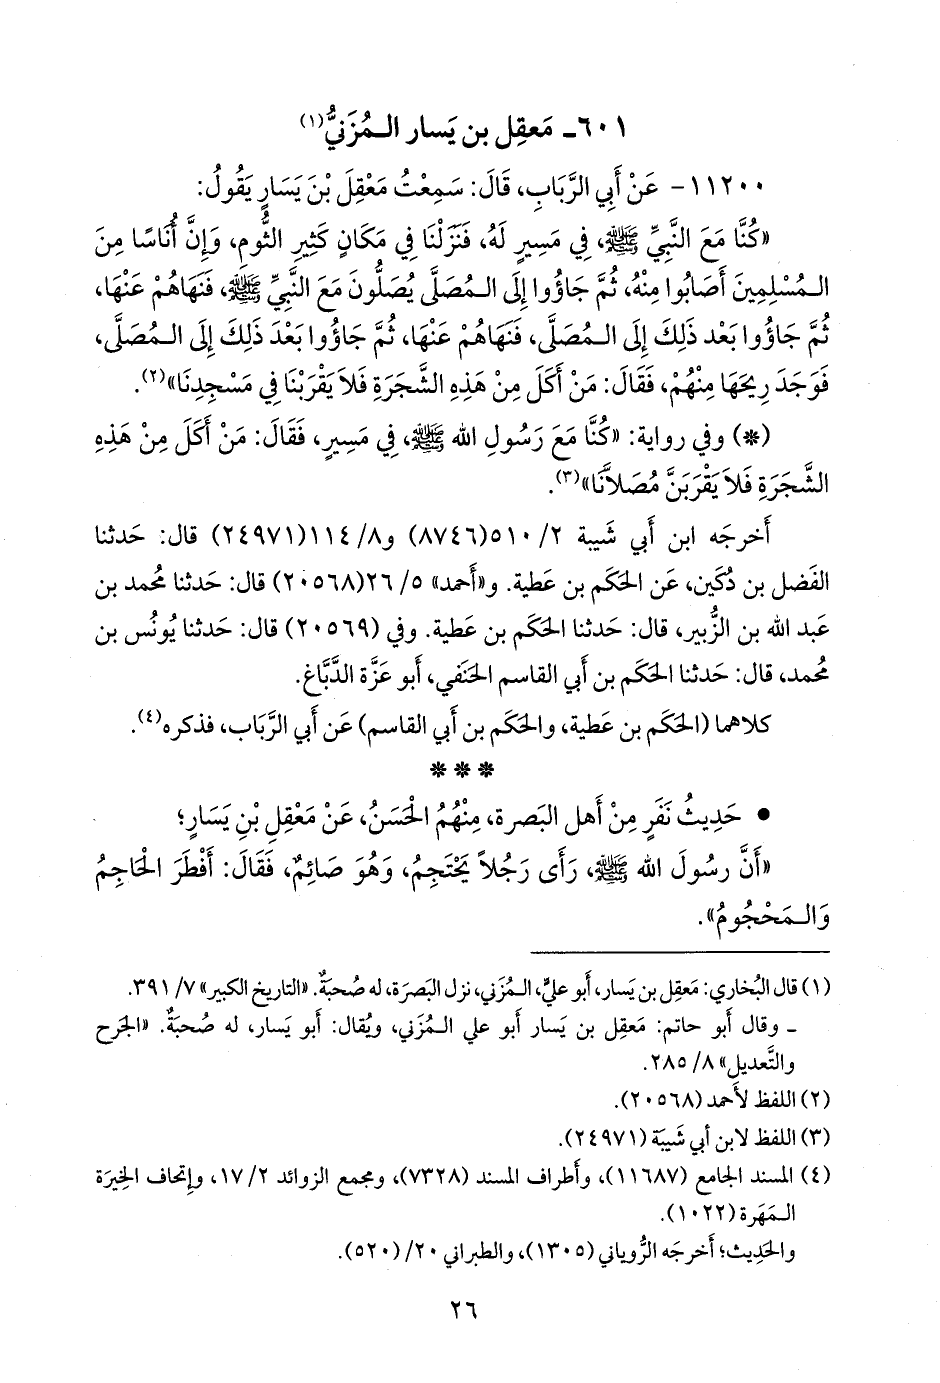 ٦٠١ـ مَعقِل بن يَسار الـمُزَنيُّ(١)
١١٢٠٠- عَنْ أَبِي الرَّبَابِ، قَالَ: سَمِعْتُ مَعْقِلَ بْنَ يَسَارٍ يَقُولُ:
«كُنَّا مَعَ النَّبِيِّ ﷺ، فِي مَسِيرٍ لَهُ، فَنَزَلْنَا فِي مَكَانٍ كَثِيرِ الثُّومِ، وَإِنَّ أُنَاسًا مِنَ
الـمُسْلِمِينَ أَصَابُوا مِنْهُ، ثُمَّ جَاؤُوا إِلَى الـمُصَلَّى يُصَلُّونَ مَعَ النَّبِيِّ ﷺ، فَنَهَاهُمْ عَنْهَا،
ثُمَّ جَاؤُوا بَعْد ذَلِكَ إِلَى الـمُصَلَّى، فَنَهَاهُمْ عَنْهَا، ثُمَّ جَاؤُوا بَعْدَ ذَلِكَ إِلَى الـمُصَلَّى،
فَوَجَدَ رِيحَهَا مِنْهُمْ، فَقَالَ: مَنْ أَكَلَ مِنْ هَذِهِ الشَّجَرَةِ فَلاَ يَقْرَبْنَا فِي مَسْجِدِنَا»(٢).
(*) وفي رواية: «كُنَّا مَعَ رَسُولِ الله ﷺ، فِي مَسِيرٍ، فَقَالَ: مَنْ أَكَلَ مِنْ هَذِهِ
الشَّجَرَةِ فَلاَ يَقْرَبَنَّ مُصَلاَّنَا»(٣).
أَخرجَه ابن أَبي شَيبة ٢/ ٥١٠(٨٧٤٦) و٨/ ١١٤(٢٤٩٧١) قال: حَدثنا
الفَضل بن دُكَين، عَن الحَكَم بن عَطية. و«أَحمد» ٥/ ٢٦(٢٠٥٦٨) قال: حَدثنا مُحمد بن
عَبد الله بن الزُّبير، قال: حَدثنا الحَكَم بن عَطية. وفي (٢٠٥٦٩) قال: حَدثنا يُونُس بن
مُحمد، قال: حَدثنا الحَكَم بن أَبي القاسم الحَنَفي، أَبو عَزَّة الدَّبَّاغ.
كلاهما (الحَكَم بن عَطية، والحَكَم بن أَبي القاسم) عَن أَبي الرَّبَاب، فذكره(٤).
* * *
• حَدِيثُ نَفَرٍ مِنْ أَهل البَصرة، مِنْهُمُ الحَسَنُ، عَنْ مَعْقِلِ بْنِ يَسَارٍ؛
«أَنَّ رسُولَ الله ﷺ، رَأَى رَجُلاً يَحْتَجِمُ، وَهُوَ صَائِمٌ، فَقَالَ: أَفْطَرَ الْحَاجِمُ
وَالـمَحْجُومُ».
(١) قال البُخاري: مَعقِل بن يَسار، أَبو عليٍّ، الـمُزَني، نزل البَصرَة، له صُحبَةٌ. «التاريخ الكبير» ٧/ ٣٩١.
ـ وقال أَبو حاتم: مَعقِل بن يَسار أَبو علي الـمُزَني، ويُقال: أَبو يَسار، له صُحبَةٌ. «الجَرح
والتَّعديل» ٨/ ٢٨٥.
(٢) اللفظ لأَحمد (٢٠٥٦٨).
(٣) اللفظ لابن أَبي شَيبَة (٢٤٩٧١).
(٤) المسند الجامع (١١٦٨٧)، وأَطراف المسند (٧٣٢٨)، ومجمع الزوائد ٢/ ١٧، وإِتحاف الخِيرَة
الـمَهَرة (١٠٢٢).
والحَدِيث؛ أَخرجَه الرُّوياني (١٣٠٥)، والطبراني ٢٠/ (٥٢٠).
٢٦